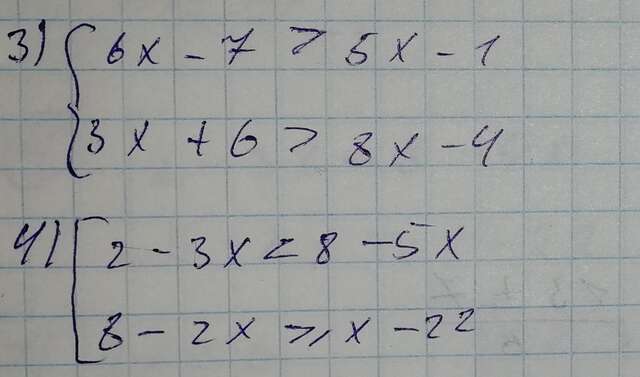 3) { 6x - 7 > 5x - 1
3x + 6 > 8x - 4
4) [ 2 - 3x < 8 - 5x
8 - 2x ⩾ x - 22